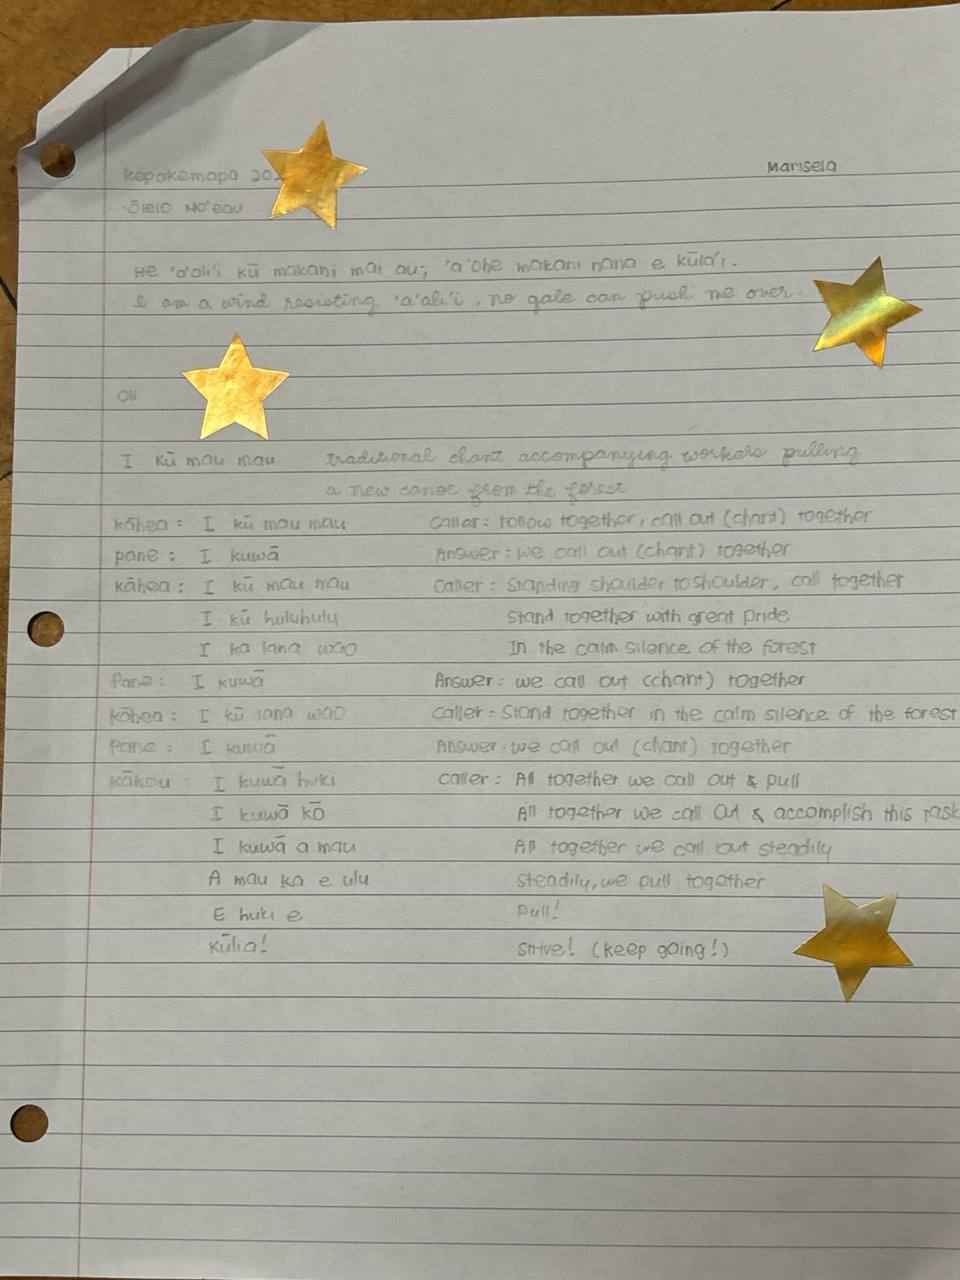 Kepakemapa 20
Marisela
'Ōlelo No'eau
He 'a'ali'i kū makani mai au; 'a'ohe makani nana e kūla'i.
I am a wind resisting 'a'ali'i, no gale can push me over.
Oli
I kū mau mau traditional chant accompanying workers pulling
a new canoe from the forest
kāhea: I kū mau mau Caller: Follow together, call out (chant) together
pane: I kuwā Answer: we call out (chant) together
kāhea: I kū mau mau Caller: Standing shoulder to shoulder, call together
I kū huluhulu Stand together with great pride
I ka lana wao In the calm silence of the forest
Pane: I kuwā Answer: we call out (chant) together
kāhea: I kū lana wao Caller: Stand together in the calm silence of the forest
Pane: I kuwā Answer: we call out (chant) together
kākou: I kuwā huki Caller: All together we call out & pull
I kuwā kō All together we call out & accomplish this task
I kuwā a mau All together we call out steadily
A mau ka e ulu steadily, we pull together
E huki e Pull!
Kūlia! Strive! (keep going!)